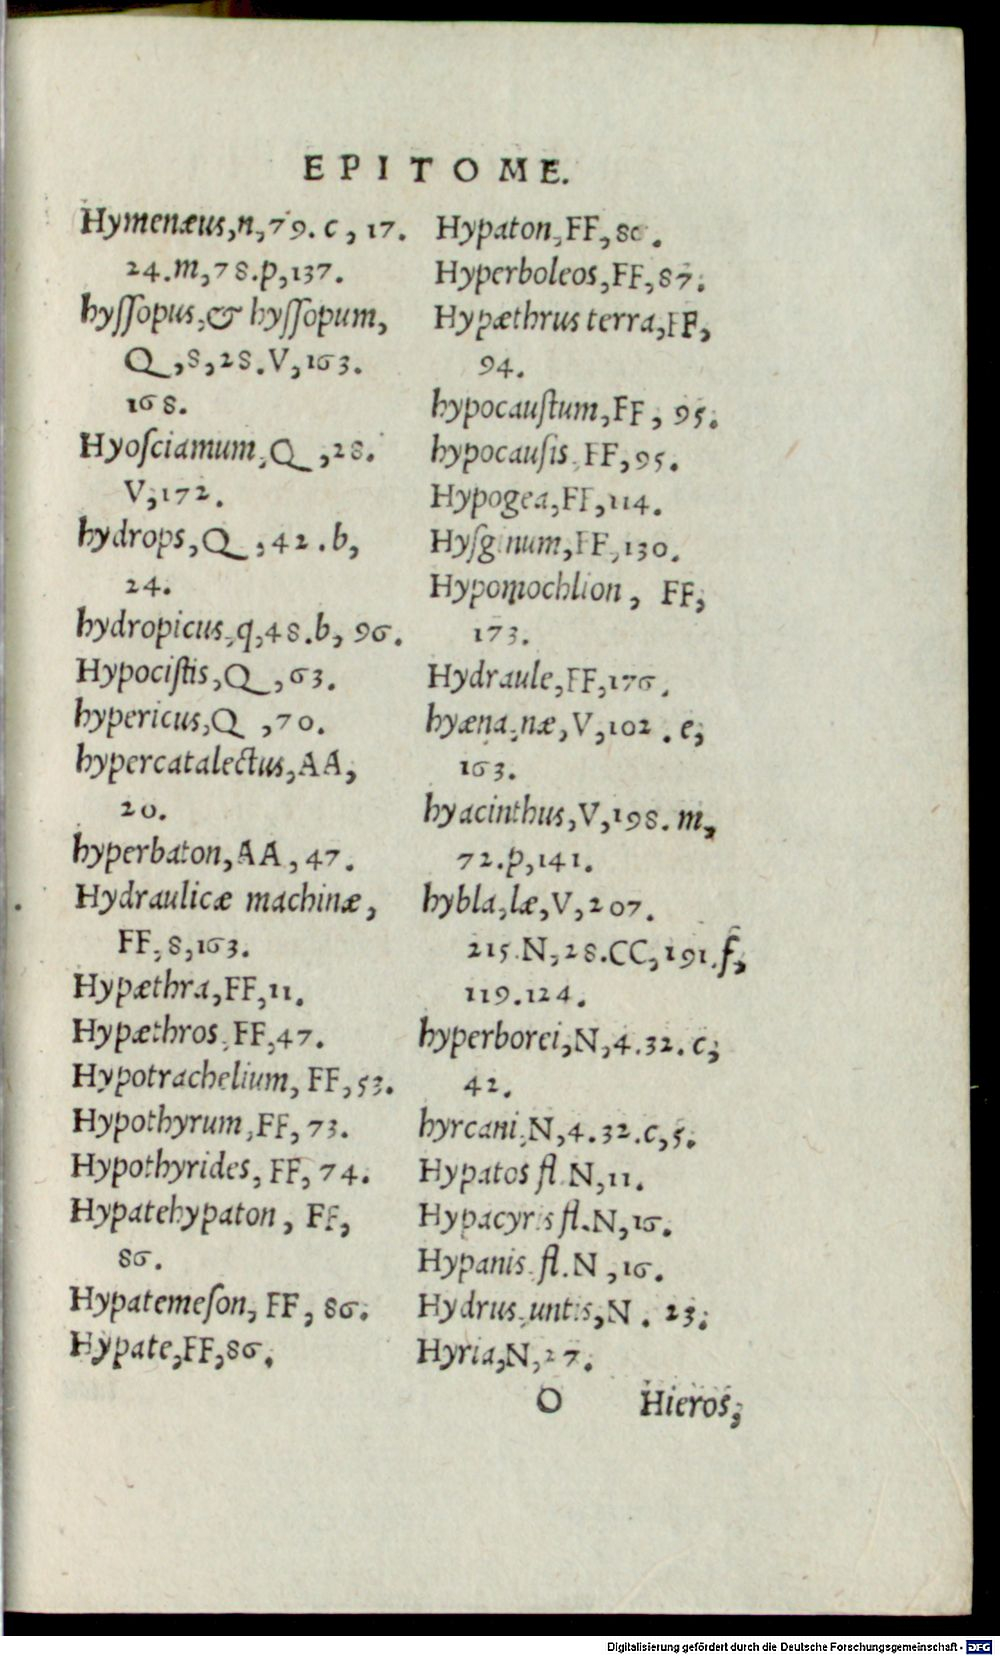 EPITOME.
Hymenæus,n,79.c,17.
24.m,78.p,137.
hyſſopus,& hyſſopum,
Q,8,28.V,163.
168.
Hyoſciamum,Q,28.
V,172.
hydrops,Q,42.b,
24.
hydropicus,q,48.b,96.
Hypociſtis,Q,63.
hypericus,Q,70.
hypercatalectus,AA,
20.
hyperbaton,AA,47.
Hydraulicæ machinæ,
FF,8,163.
Hypæthra,FF,11.
Hypæthros,FF,47.
Hypotrachelium,FF,53.
Hypothyrum,FF,73.
Hypothyrides,FF,74.
Hypatehypaton,FF,
86.
Hypatemeſon,FF,86.
Hypate,FF,86.
Hypaton,FF,
Hyperboleos,FF,87.
Hypæthrus terra,FF,
94.
hypocauſtum,FF,95.
hypocauſis,FF,95.
Hypogea,FF,114.
Hyſginum,FF,130.
Hypomochlion,FF,
173.
Hydraule,FF,176.
hyæna,næ,V,102.e,
163.
hyacinthus,V,198.m,
72.p,141.
hybla,læ,V,207.
215.N,28.CC,191.f,
119.124.
hyperborei,N,4.32.c,
42.
hyrcani,N,4.32.c,5.
Hypatos fl.N,11.
Hypacyris fl.N,16.
Hypanis.fl.N,16.
Hydrus,untis,N.23.
Hyria,N,27.
O Hieros,
Digitalisierung gefördert durch die Deutsche Forschungsgemeinschaft - DFG